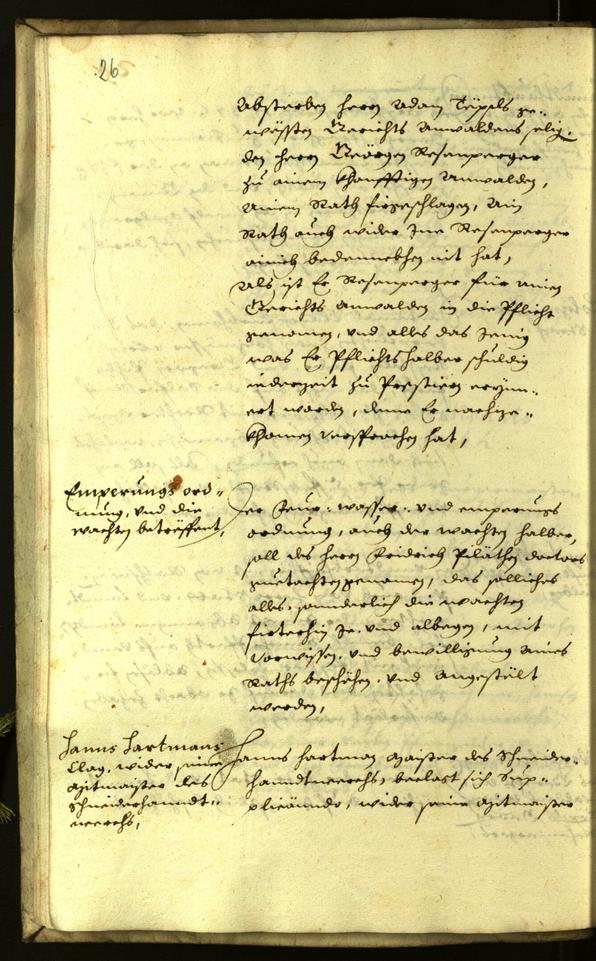 26
Absterben herrn Adam Texpls ge¬
wesßten Gerichts Anwaldens selig,
den herrn Geörgen Rosenperger
zu ainem khonfftigen Anwalden,
Ainem Rath firgeschlagen, Ain
Rath auch wider Ine Rosenperger
ainich bedennckhen nit hat,
Als ist Er Rosenperger für ainen
Gerichts anwalden in die Pflicht
genomen, und alles das Jenig
was Er Pflichtshalber schuldig
iederzeit zu Prestiern erynn¬
ert worden, deme Er nachze¬
khomen versprochen hat,
Emperungs ord¬
nung, und die
wachten betreffent,
Der Feur: wasser: und emperungs
ordnung, auch der wachten halber,
soll des herrn Fridrich doctors
guetachten genomen, das solliches
alles, sonderlich die wachten
firterhin Je und albegen, mit
Vorwissen, und bewilligung aines
Raths beschehen, und Angestelt
werden,
Hanns Hartmans
Clag, wider seine
Mitmaister des
Schneiderhanndt¬
werchs,
Hanns Hartman Maister des Schneider¬
hanndtwerchs, beclagt sich Sup¬
plicando, wider seine Mitmaister